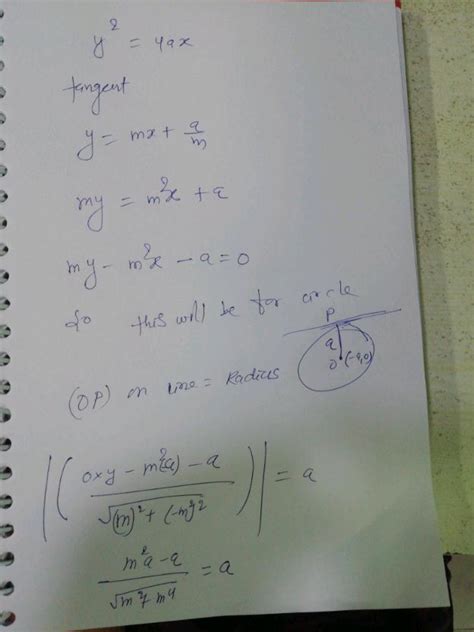 y² = 4ax
tangent
y = mx + a/m
my = m²x + a
my - m²x - a = 0
So this will be for circle
P
a
O (-a,0)
(OP) on line = Radius
|((0xy - m²(-a) - a)/(√(m)² + (-m²)²))| = a
(m²a - a)/(√m² + m⁴) = a